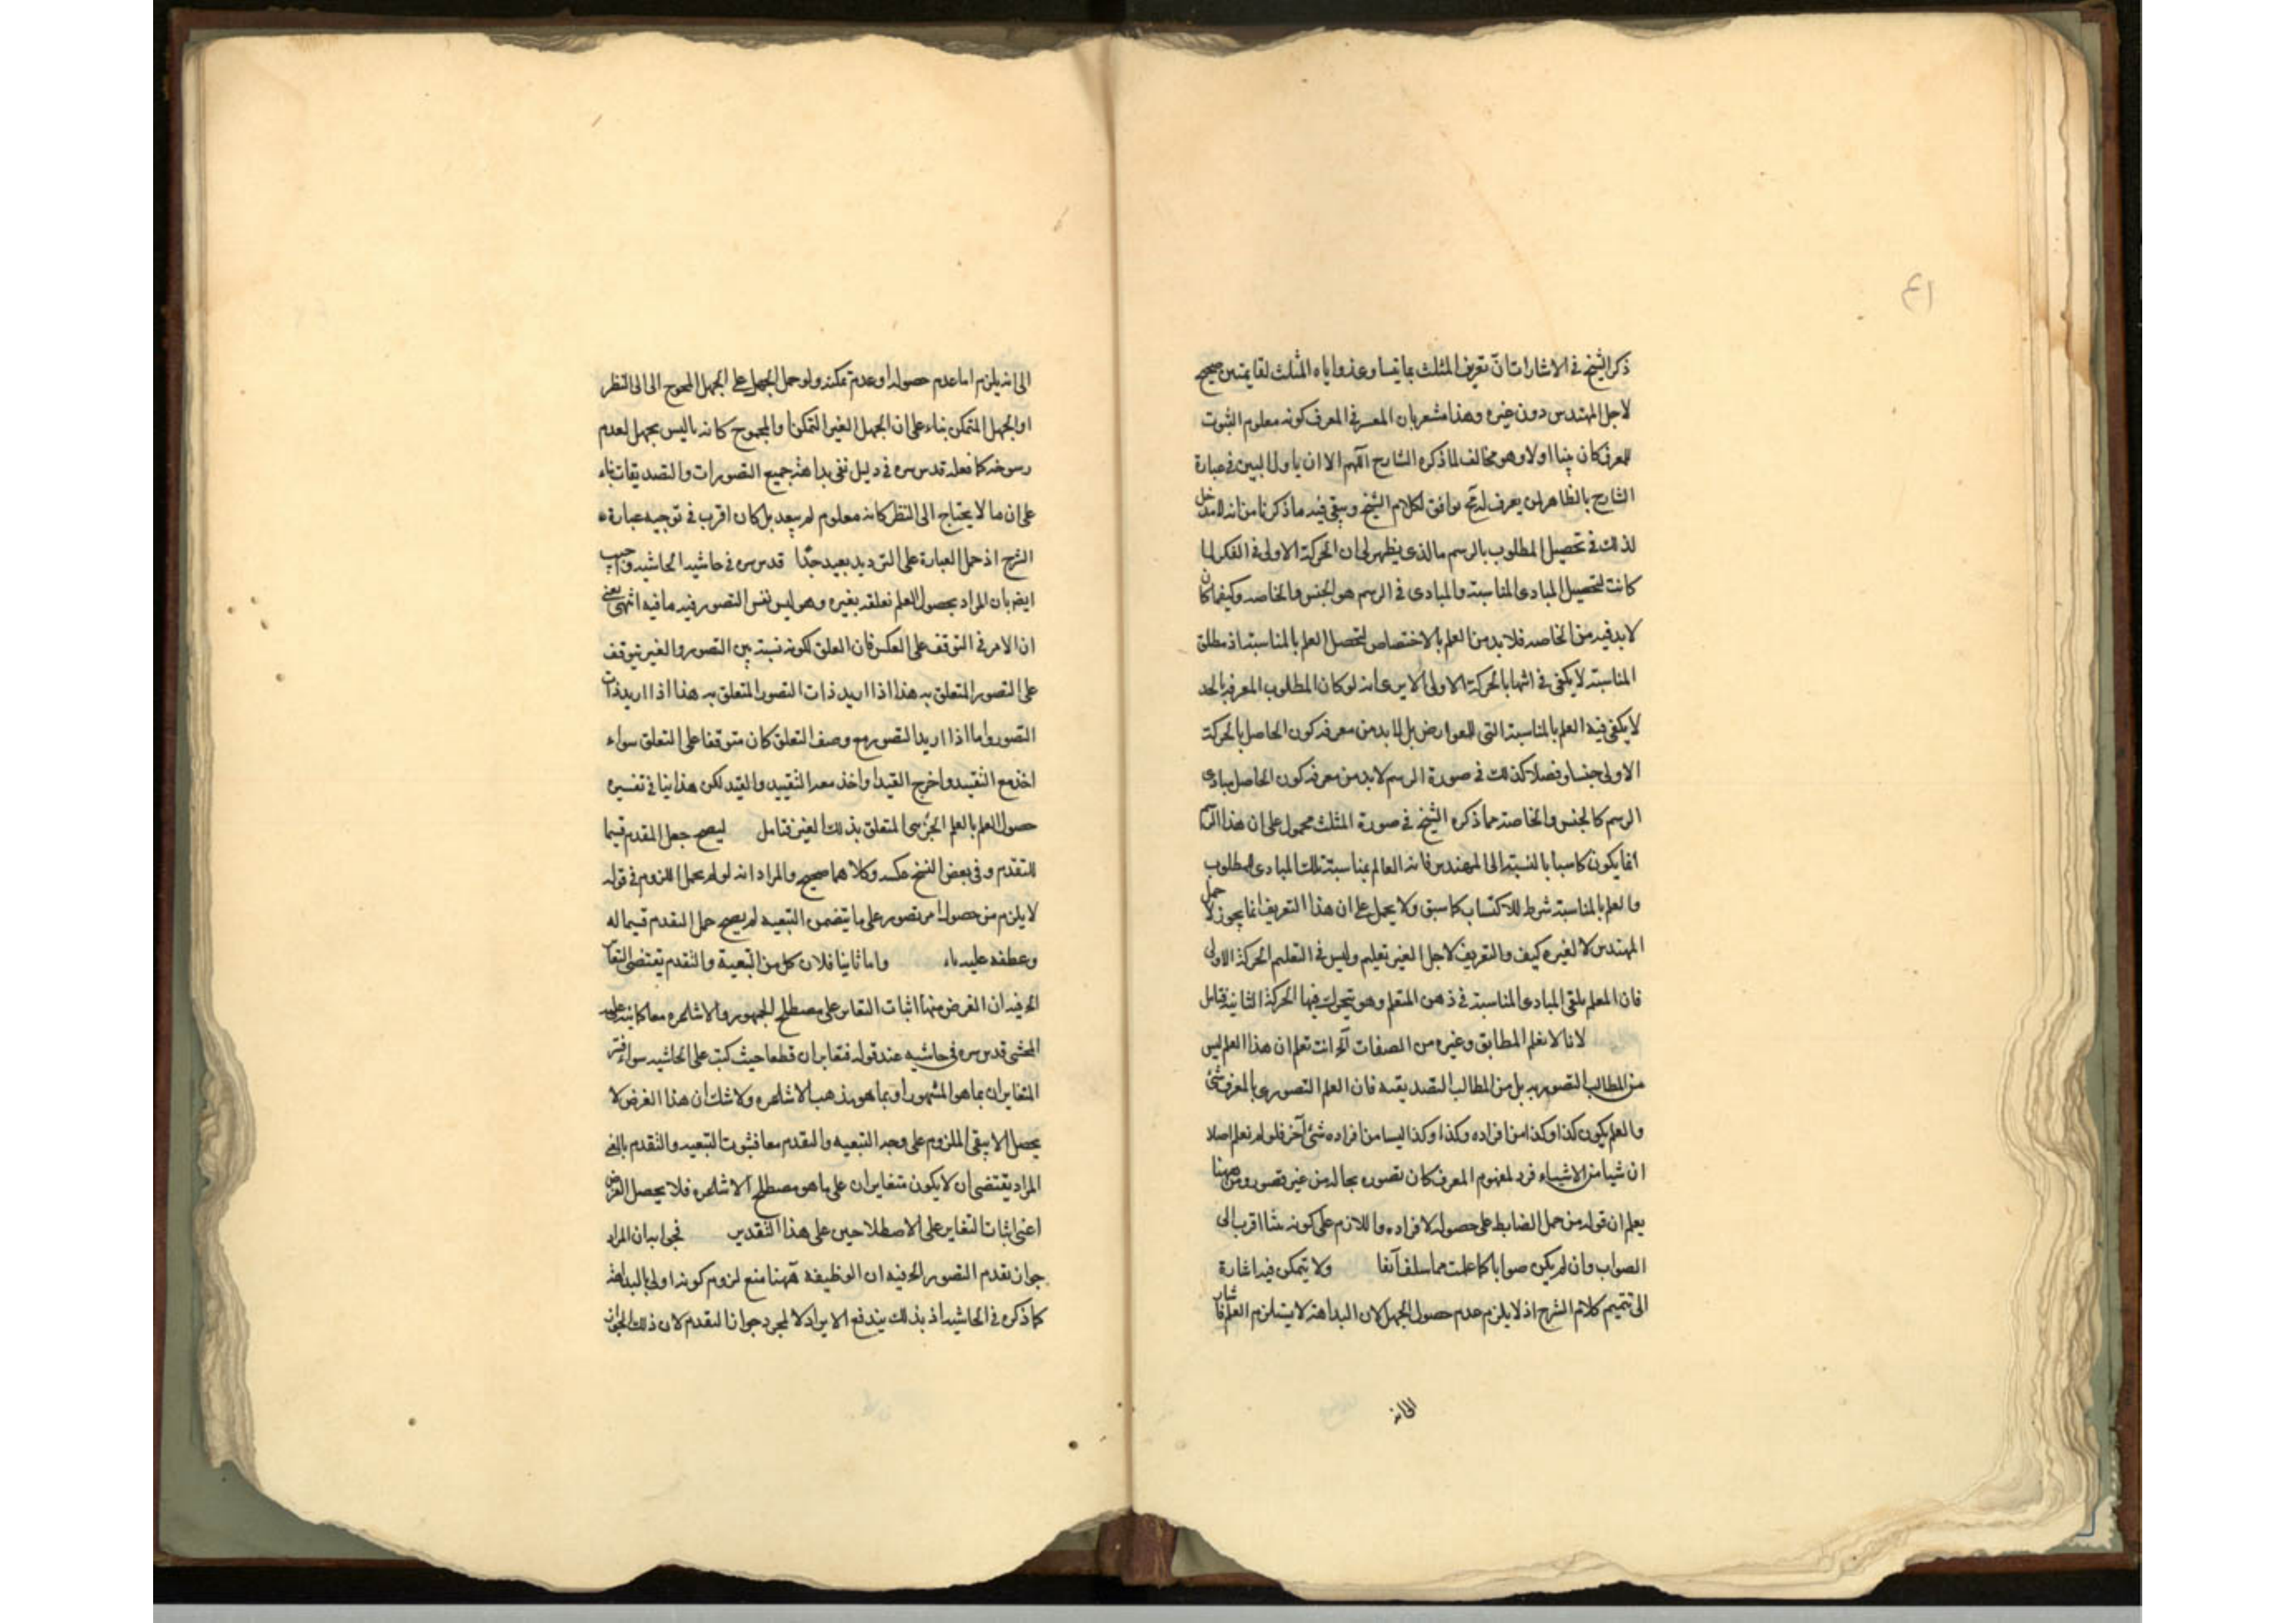 ٤١
ذكر الشيخ في الاشارات ان تعريف المثلث بما يساوى زواياه المثلث لقايمتين صحيح
لاجل المهندس دون غيره وهذا مشعر بان المعتبر في المعرف كونه معلوم الثبوت
للمعرف كان بينا اولا وهو مخالف لما ذكره الشارح اللهم الا ان ياول البين في عبارة
الشارح بالظاهر لمن يعرف له فح يوافق لكلام الشيخ وبقى فيه ما ذكرنا من انه لا مدخل
لذلك في تحصيل المطلوب بالرسم مالذى يظهر لى ان الحركة الاولى في الفكر لما
كانت لتحصيل المبادى المناسبة والمبادى في الرسم هو الجنس والخاصه وكيفما كان
لابد فيه من الخاصه فلا بد من العلم بالاختصاص لتحصل العلم بالمناسبة اذ مطلق
المناسبة لا يكفى في انتهاء الحركة الاولى الا يرى انه لو كان المطلوب المعرفه بالحد
لا يكفى فيه العلم بالمناسبة التى للعوارض بل لا بد من معرفه كون الحاصل بالحركة
الاولى جنسا وفصلا كذلك في صورة الرسم لابد من معرفه كون الحاصل مبادى
الرسم كالجنس والخاصة مما ذكره الشيخ في صورة المثلث محمول على ان هذا الرسم
انما يكون كاسبا بالنسبة الى المهندس فانه العالم بمناسبة تلك المبادى للمطلوب
والعلم بالمناسبة شرط للاكتساب كما سبق ولا يحمل على ان هذا التعريف انما يجوز لاجل
المهندس لا لغيره كيف والتعريف لاجل الغير تعليم وليس في التعليم الحركة الاولى
فان المعلم يلقى المبادى المناسبة في ذهن المتعلم وهو يتحرك فيها الحركة الثانية فتامل
لانا لا نعلم المطابق وغيره من الصفات الخ انت تعلم ان هذا العلم ليس
من المطالب التصوريه بل من المطالب التصديقيه فان العلم التصورى بالمعرف شئ
والعلم بكون كذا وكذا من افراده وكذا وكذا ليسا من افراده شئ آخر فلو لم نعلم اصلا
ان شيا من الاشياء فرد لمفهوم المعرف كان تصوره بحاله من غير قصور ومن ههنا
يعلم ان قوله من حمل الضابط على حصوله لافراده واللازم على كونه شا اقرب الى
الصواب وان لم يكن صوابا كما علمت مما سلف آنفا ولا يتمكن فيه اشارة
الى تتميم كلام الشرح اذ لا يلزم عدم حصول الجهل لان البداهة لا يستلزم العلم فاشار
الى انه
الى انه يلزم اما عدم حصوله او عدم تمكنه ولو حمل الجهل على الجهل المحوج الى النظر
او الجهل المتمكن بناء على ان الجهل الغير المتمكن والمحوج كانه ليس بجهل لعدم
رسوخه كما فعله قدس سره في دليل نفى بداهة جميع التصورات والتصديقات بناء
على ان ما لا يحتاج الى النظر كانه معلوم لم يبعد بل كان اقرب في توجيه عبارة
الشرح اذ حمل العبارة على الترديد بعيد جدا قدس سره في حاشيه الحاشيه واجيب
ايضا بان المراد بحصول العلم تعلقه بغيره وهو ليس نفس التصور فيه ما فيه انتهى يعنى
ان الامر في التوقف على العكس فان العلق لكونه نسبة بين التصور والغير يتوقف
على التصور المتعلق به هذا اذا اريد ذات التصور المتعلق به هذا اذا اريد ذات
التصور واما اذا اريد التصور مع وصف التعلق كان متوقفا على التعلق سواء
اخذ مع التقييد واخرج القيد او اخذ معه التقييد والقيد لكن هذا ينافى تفسيره
حصول العلم بالعلم الجزئى المتعلق بذلك الغير فتامل ليصح جعل المقدم قيما
للتقدم وفى بعض النسخ عكسه وكلاهما صحيح والمراد انه لو لم يحمل اللزوم في قوله
لا يلزم من حصول امر تصوره على ما يتضمن التبعيه لم يصح حمل التقدم قيما له
وعطفه عليه باء واما ثانيا فلان كل من التبعية والتقدم يقتضى التغاير
الخ فيه ان الغرض منها اثبات التغاير على مصطلح الجمهور والاشاعره معا كما ينبه عليه
المحشى قدس سره في حاشيه عند قوله فتغايران قطعا حيث كتب على الحاشيه سواء فسر
المتغايران بما هو المشهور او بما هو مذهب الاشاعره ولا شك ان هذا الغرض لا
يحصل الا ببقى الملزوم على وجه التبعيه والتقدم معا فثبوت التبعيه والتقدم بالمعنى
المراد يقتضى ان لا يكون متغايران على ما هو مصطلح الاشاعره فلا يحصل الغرض
اعنى اثبات التغاير على الاصطلاحين على هذا التقدير فجوابه ان المراد
جواز تقدم التصور الخ فيه ان الوظيفه ههنا منع لزوم كونه اولى بالبداهة
كما ذكره في الحاشيه اذ بذلك يندفع الايراد لا لمجرد جواز التقدم لان ذلك الجواز